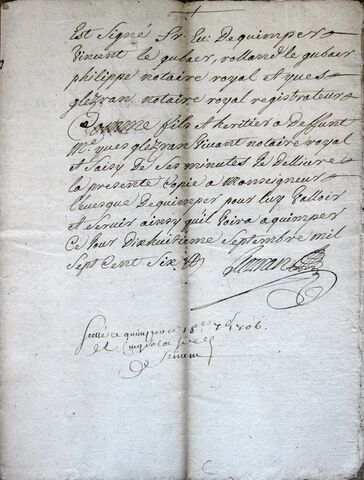 Est Signé Fr. Ev. De quimper
Vincent le gubaer, rolland le gubaer
philippe notaire royal Et yves
glezran notaire royal registrateur
Comme fils Et heritier a Deffunt
Me. yves glezran Vivant notaire royal
Et Saisy de Ses minutes Je Delivre
la presente Copie a Monseigneur
levesque De quimper pour luy Valloir
Et Servir ainsy quil Voira a quimper
Ce Jour Dixhuitieme Septembre mil
Sept Cent Six
Glezran
Scellé a quimper ce 18e 7bre 1706.
et